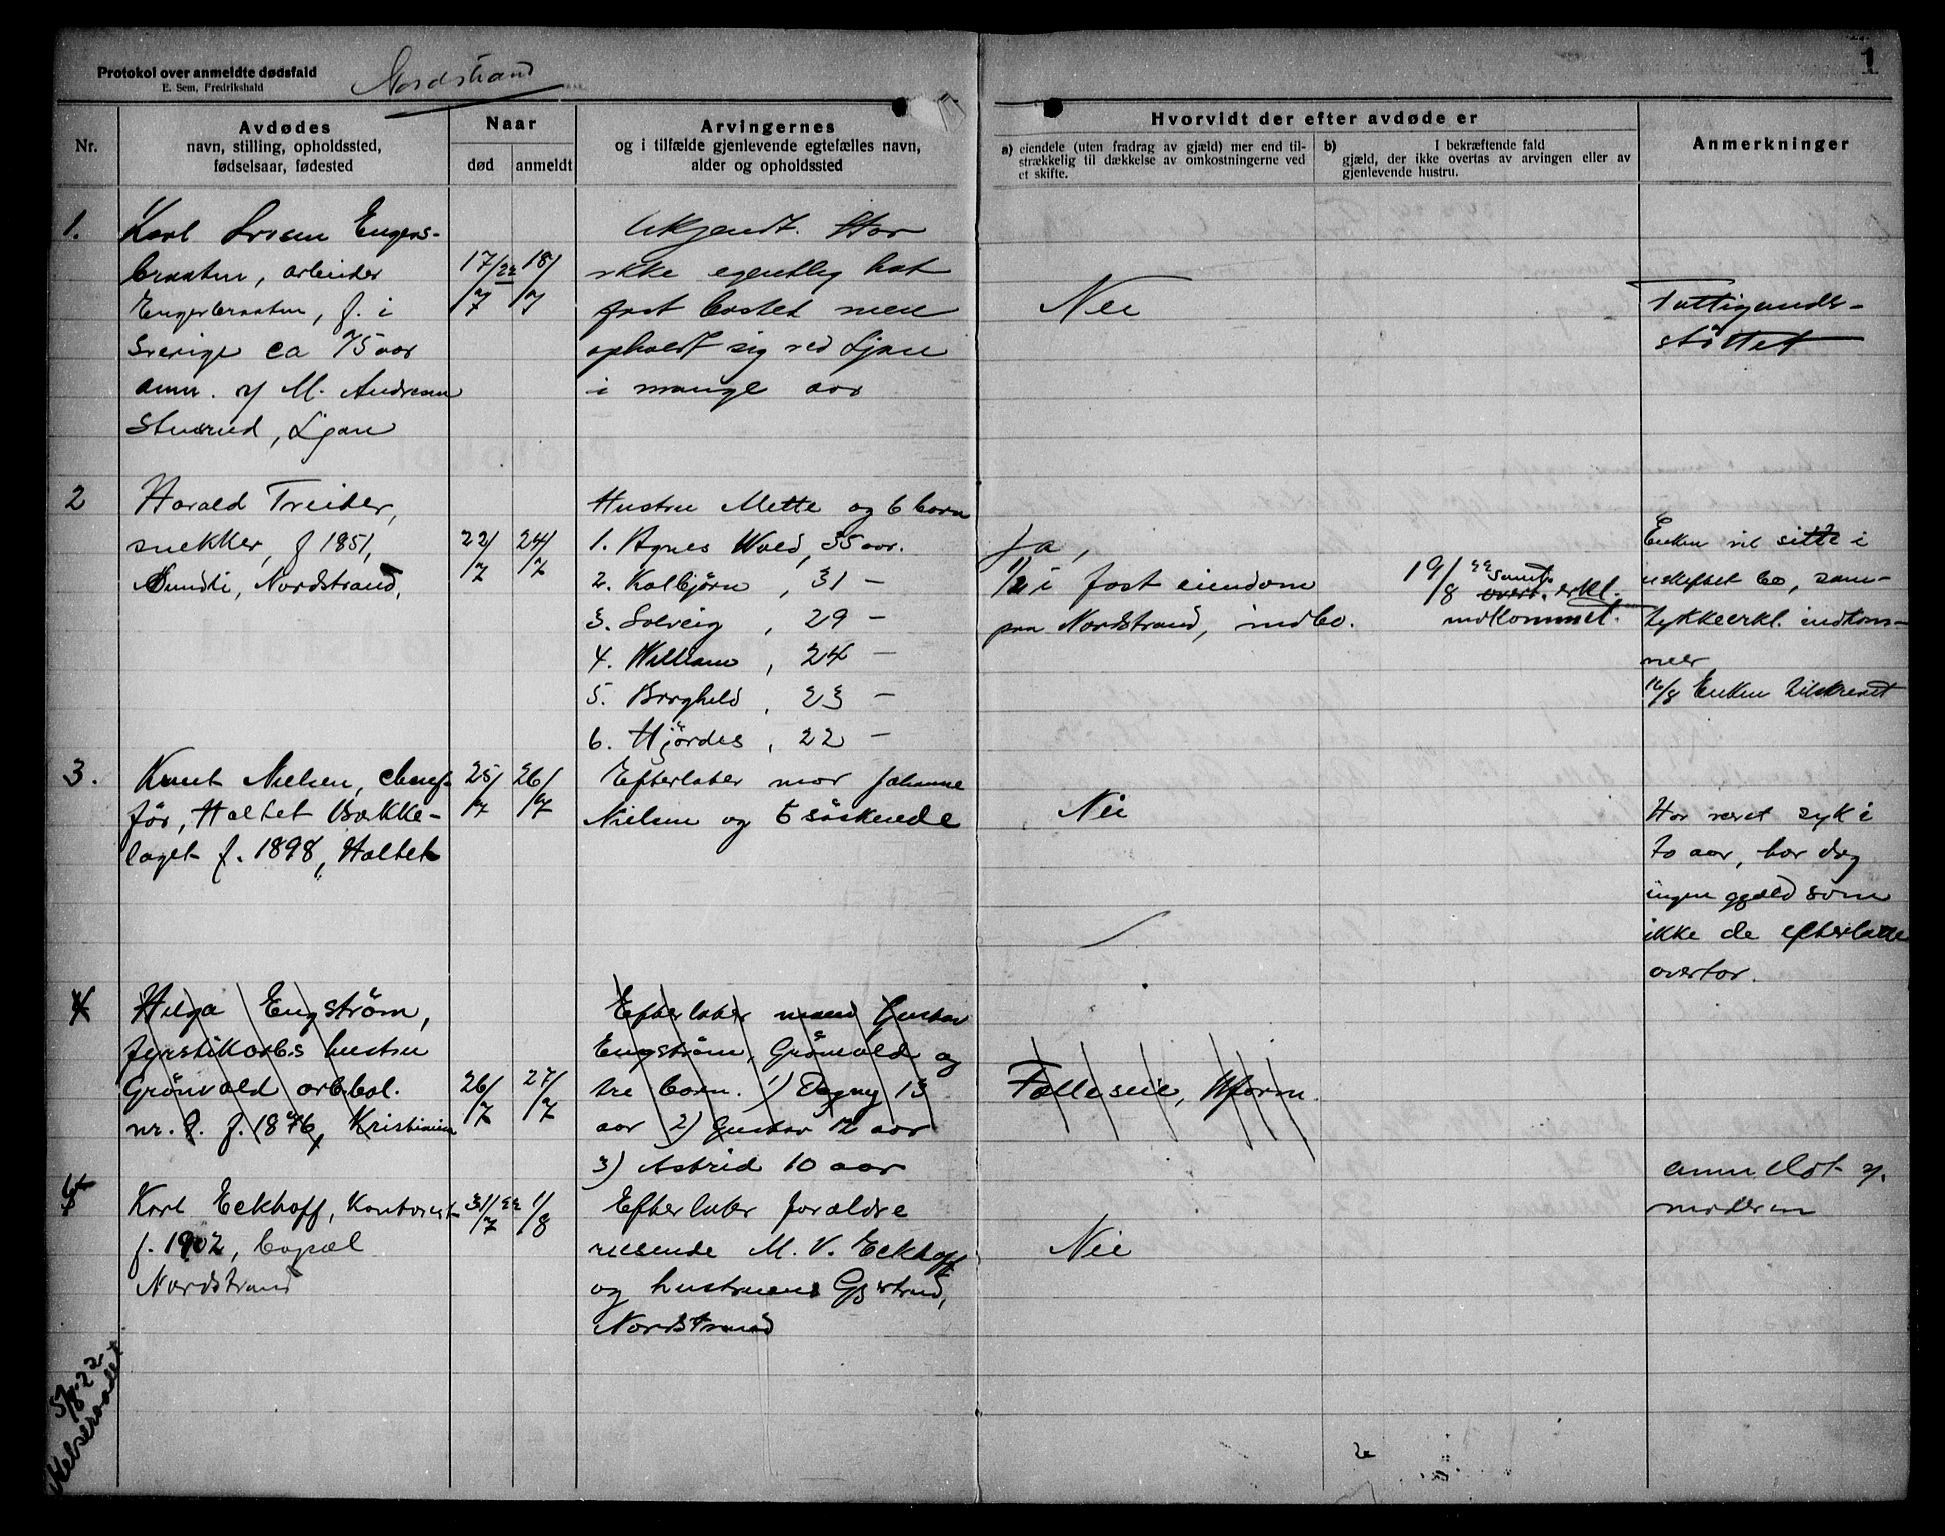 1
Protokol over anmeldte dødsfald
E. Sem, Fredrikshald
Nordstrand
Nr.
Avdødes
navn, stilling, opholdssted,
fødselsaar, fødested
Naar
død
anmeldt
Arvingernes
og i tilfælde gjenlevende egtefælles navn,
alder og opholdssted
Hvorvidt der efter avdøde er
a) eiendele (uten fradrag av gjæld) mer end til-
strækkelig til dækkelse av omkostningerne ved
et skifte.
b) I bekræftende fald
gjæld, der ikke overtas av arvingen eller av
gjenlevende hustru.
Anmerkninger
1.
Karl Engers-
braaten, arbeider
Engersbraaten, f. i
Sverige ca 75 aar
anm. af M. Andresen
Stuverud, Ljan
17/7 22
18/7
Ukjendt. Har
ikke egentlig hat
fast bosted men
opholdt sig ved Ljan
i mange aar
Nei
Fattigunder-
støttet
2
Harald Treider,
snekker, f 1851,
Nordstrand,
22/7
24/7
Hustru Mette og 6 barn
1. Agnes Wold, 35 aar.
2. Kolbjørn, 31 —
3. Solveig, 29 —
4. William, 24 —
5. Borghild, 23 —
6. Hjørdes, 22 —
Ja,
1/2 i fast eiendom
paa Nordstrand, indbo.
19/8 22 samt. overt. erkl.
indkommet.
Enken vil sitte i
uskiftet bo, sam-
tykkeerkl. indkom-
mer
16/8 Enken tilskrevet
3.
Knut Nielsen, chauf-
før, Holtet Bække-
laget f. 1898, Holtet
25/7
26/7
Efterlater mor Johanne
Nielsen og 6 søskende
Nei
Har været syk i
to aar, har dog
ingen gjæld som
ikke de efterlatte
overtar.
4
Helga Engstrøm,
fyrstikarb.s hustru
Grønvold arb.bol.
nr. 9. f. 1876, Kristiania
26/7
27/7
Efterlater mand Gustav
Engstrøm, Grønvold og
tre barn. 1) Dagny 13
aar 2) Gustav 12 aar
3) Astrid 10 aar
Fælleseie,
5
Karl Eckhoff, Kontorist
f. 1902, bopæl
Nordstrand
31/7 22
1/8
Efterlater forældre
reisende M. V. Eckhoff
og hustruens Gjertrud,
Nordstrand
Nei
anmeldt af
moderen
5/8 22
Helseraadet